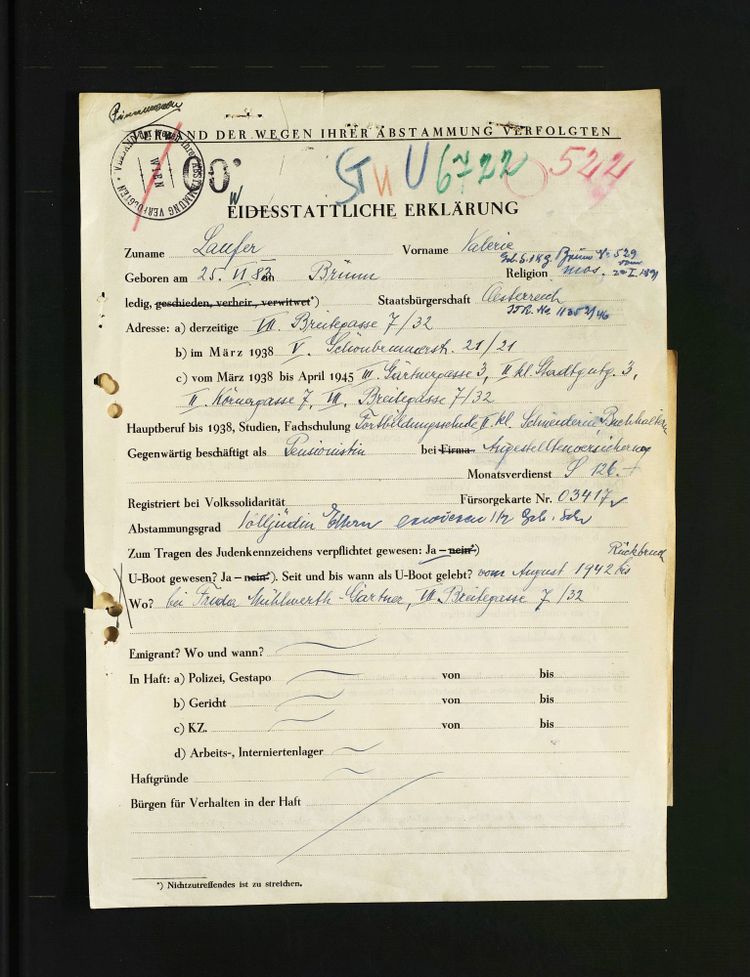 VERBAND DER WEGEN IHRER ABSTAMMUNG VERFOLGTEN
WIEN
St U U 6722 522
EIDESSTATTLICHE ERKLÄRUNG
Zuname Laufer Vorname Valerie
Geb. b. IKG. Brünn Nr. 529
Geboren am 25. VI 83 in Brünn Religion mos. 20 I. 1891
ledig, geschieden, verheir., verwitwet*) Staatsbürgerschaft Oesterreich
Adresse: a) derzeitige VII. Breitegasse 7/32
b) im März 1938 V. Schönbrunnerstr. 21/21
c) vom März 1938 bis April 1945 III. Gärtnergasse 3, II kl. Stadtgutg. 3,
II. Körnergasse 7, VII. Breitegasse 7/32
Hauptberuf bis 1938, Studien, Fachschulung Fortbildungsschule II. kl. Schneiderin, Buchhalterin
Gegenwärtig beschäftigt als Pensionistin bei Firma Angestelltenversicherung
Monatsverdienst S 126.-
Registriert bei Volkssolidarität Fürsorgekarte Nr. 03417
Abstammungsgrad Volljüdin Eltern erwiesen Geb.
Zum Tragen des Judenkennzeichens verpflichtet gewesen: Ja – nein*)
U-Boot gewesen? Ja – nein*). Seit und bis wann als U-Boot gelebt? vom August 1942 bis
Wo? bei Frida Mühlwerth-Gärtner, VII. Breitegasse 7/32
Emigrant? Wo und wann?
In Haft: a) Polizei, Gestapo von bis
b) Gericht von bis
c) KZ. von bis
d) Arbeits-, Interniertenlager
Haftgründe
Bürgen für Verhalten in der Haft
*) Nichtzutreffendes ist zu streichen.